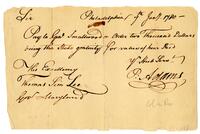 Sir Philadelphia 9th Jany 1780
Pay to Genl Smallwood or Order two Thousand Dollars
being the State gratuity for
Yr Obed Servt
His Excellency
P. Adams
Thomas Sim Lee
Govr Maryland